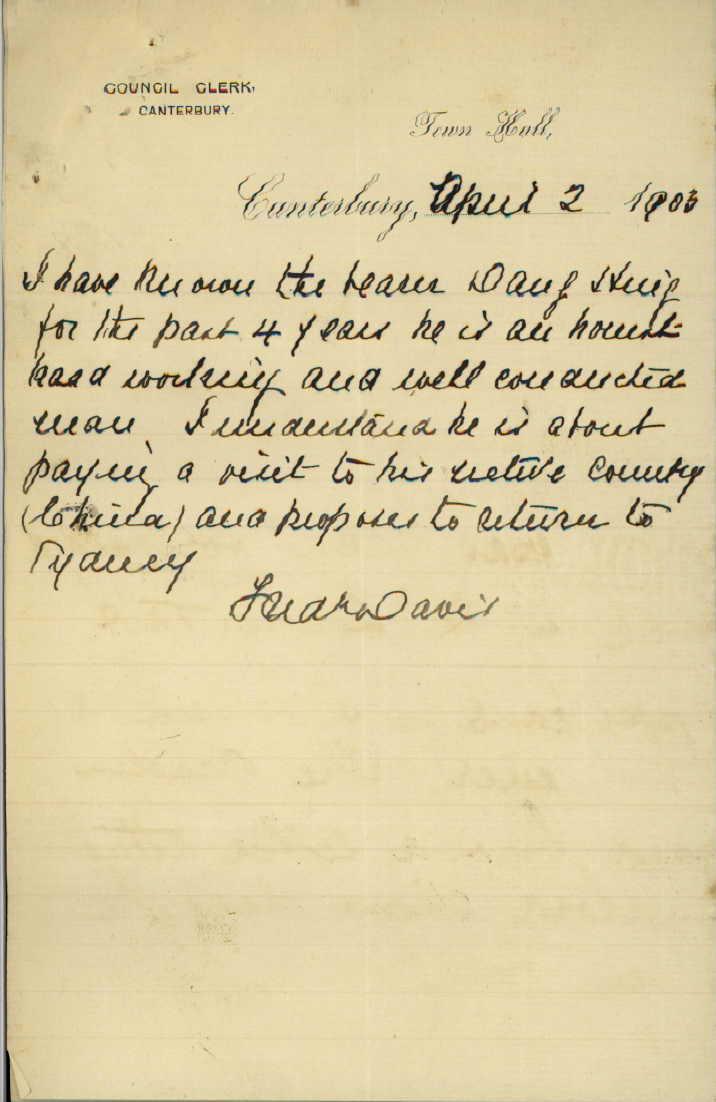 COUNCIL CLERK,
CANTERBURY.
Town Hall,
Canterbury, April 2 1903
I have known the bearer
for the past 4 years he is an honest
hard working and well conducted
man I understand he is about
paying a visit to his native country
(China) and proposes to return to
Sydney
Davis